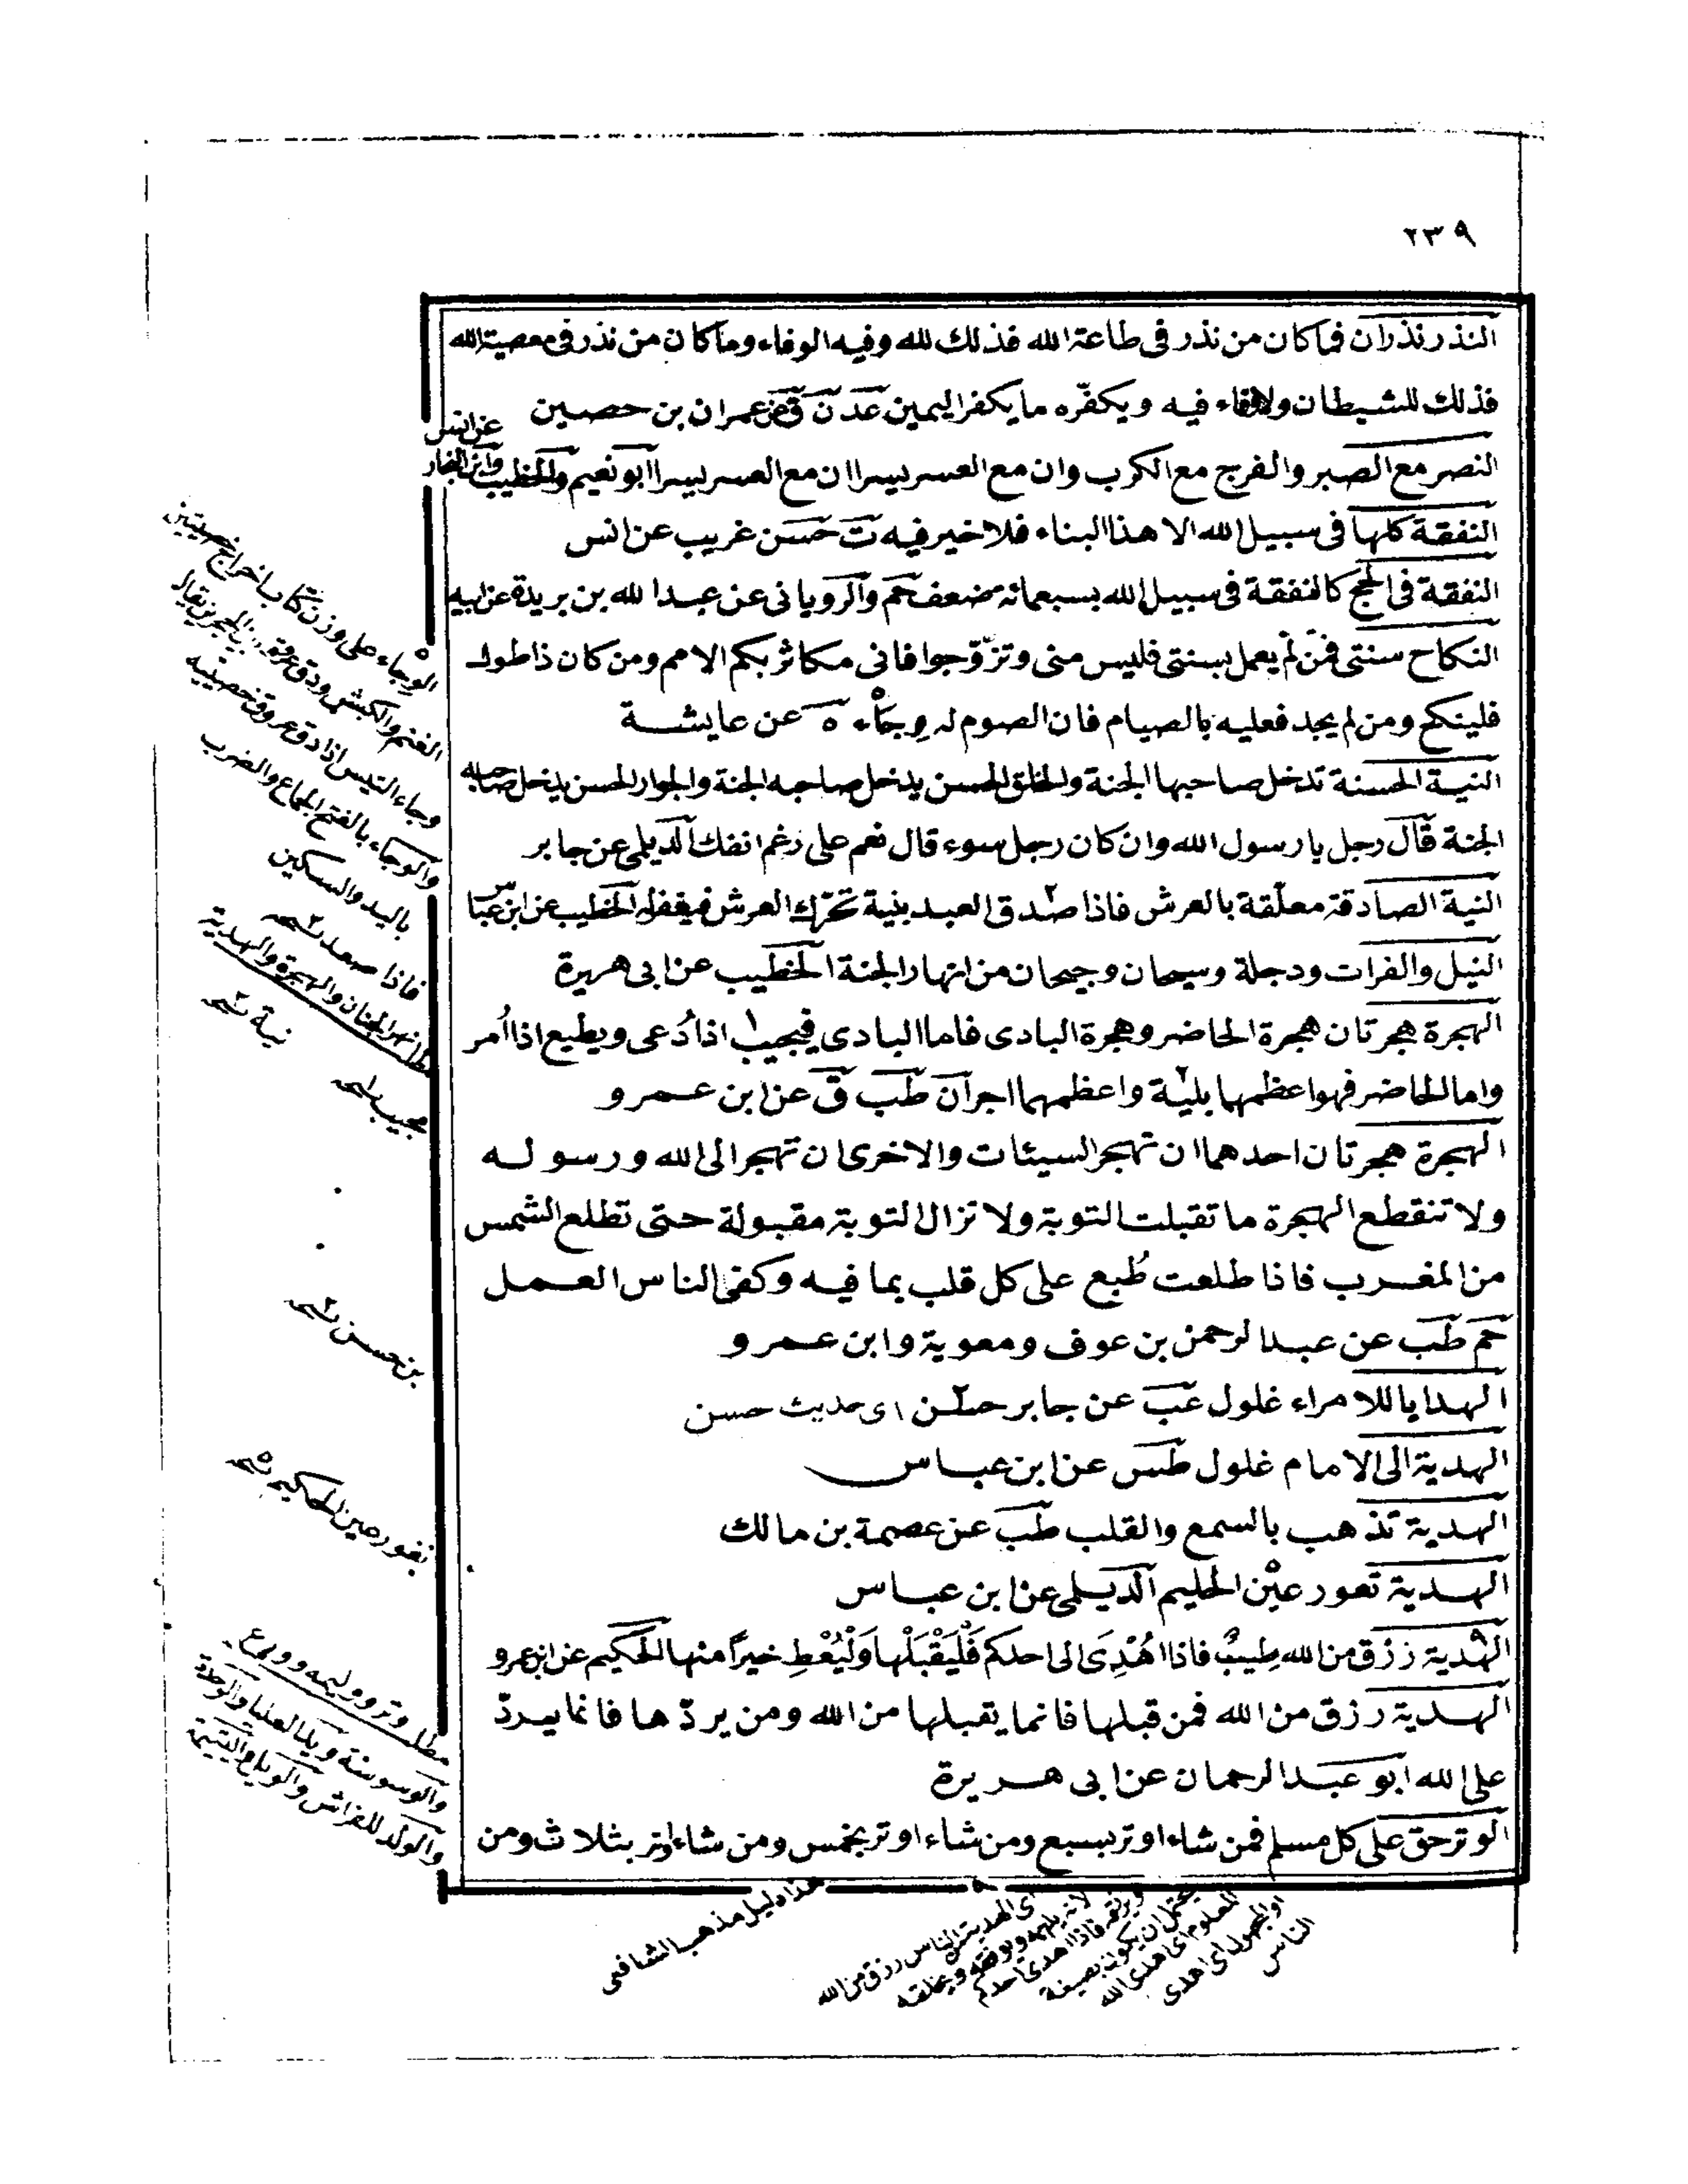 ٢٣٩
النذر نذران فما كان من نذر فى طاعة الله فذلك لله وفيه الوفاء وما كان من نذر فى معصية الله
فذلك للشيطان ولا وفاء فيه ويكفّره ما يكفر اليمين عد ن ق ض عمران بن حصين
النصر مع الصبر والفرج مع الكرب وان مع العسر يسرا ان مع العسر يسرا ابو نعيم والخطيب وابن النجار
عن انس
النفقة كلها فى سبيل الله الا هذا البناء فلا خير فيه ت حسن غريب عن انس
النفقة فى الحج كالنفقة فى سبيل الله بسبعمائة ضعف حم والرويانى عن عبد الله بن بريدة عن ابيه
النكاح سنتى فمن لم يعمل بسنتى فليس منى وتزوّجوا فانى مكاثر بكم الامم ومن كان ذا طول
فلينكح ومن لم يجد فعليه بالصيام فان الصوم له وجاء ه عن عايشة
النية الحسنة تدخل صاحبها الجنة والخلق الحسن يدخل صاحبه الجنة والجوار الحسن يدخل صاحبه
الجنة قال رجل يا رسول الله وان كان رجل سوء قال نعم على رغم انفك الديلمى عن جابر
النية الصادقة معلّقة بالعرش فاذا صدق العبد بنية تحرّك العرش فيغفر له الخطيب عن ابن عباس
النيل والفرات ودجلة وسيحان وجيحان من انهار الجنة الخطيب عن ابى هريرة
الهجرة هجرتان هجرة الحاضر وهجرة البادى فاما البادى فيجيب اذا دُعى ويطيع اذا اُمر
واما الحاضر فهو اعظمها بلية واعظمهما اجرا ن طب ق عن ابن عمرو
الهجرة هجرتان احدهما ان تهجر السيئات والاخرى ان تهجر الى الله ورسوله
ولا تنقطع الهجرة ما تقبلت التوبة ولا تزال التوبة مقبولة حتى تطلع الشمس
من المغرب فاذا طلعت طُبع على كل قلب بما فيه وكفى الناس العمل
حم طب عن عبد الرحمن بن عوف ومعوية وابن عمرو
الهدايا للامراء غلول عب عن جابر حسن اى حديث حسن
الهدية الى الامام غلول طس عن ابن عباس
الهدية تذهب بالسمع والقلب طب عن عصمة بن مالك
الهدية تعور عين الحليم الديلمى عن ابن عباس
الهدية رزق من الله طيبٌ فاذا اُهْدِىَ الى احدكم فَلْيَقْبَلْها وَلْيُعْطِ خيراً منها الحكيم عن ابن عمرو
الهدية رزق من الله فمن قبلها فانما يقبلها من الله ومن يردّها فانما يردّ
على الله ابو عبد الرحمان عن ابى هريرة
الوتر حق على كل مسلم فمن شاء اوتر بسبع ومن شاء اوتر بخمس ومن شاء اوتر بثلاث ومن
الوجاء على وزن كتاب اخراج خصيتين
الغنم والكبش ودق عروقه بين الحجرين يقال
وجاء التيس اذا دق عروق خصيتيه
والوجاء بالفتح الجماع والضرب
باليد والسكين
فاذا صعد نسخه
مطلب انهر الجنان والهجرة والهدية
نية نسخه
مجيب نسخه
بن حسن نسخه
تغور عين الحكيم نسخه
مطلب وتر ووليمه وورع
والوسوسة ويل العلما والوحدة
والولد للفراش والويل واليتيمة
هذا دليل مذهب الشافعى
اى الهدية من الناس رزق من الله
فاذا اهدى احدكم
يحتمل ان يكون بصيغة
المعلوم اى اهدى الله
او المجهول اى اهدى
الناس